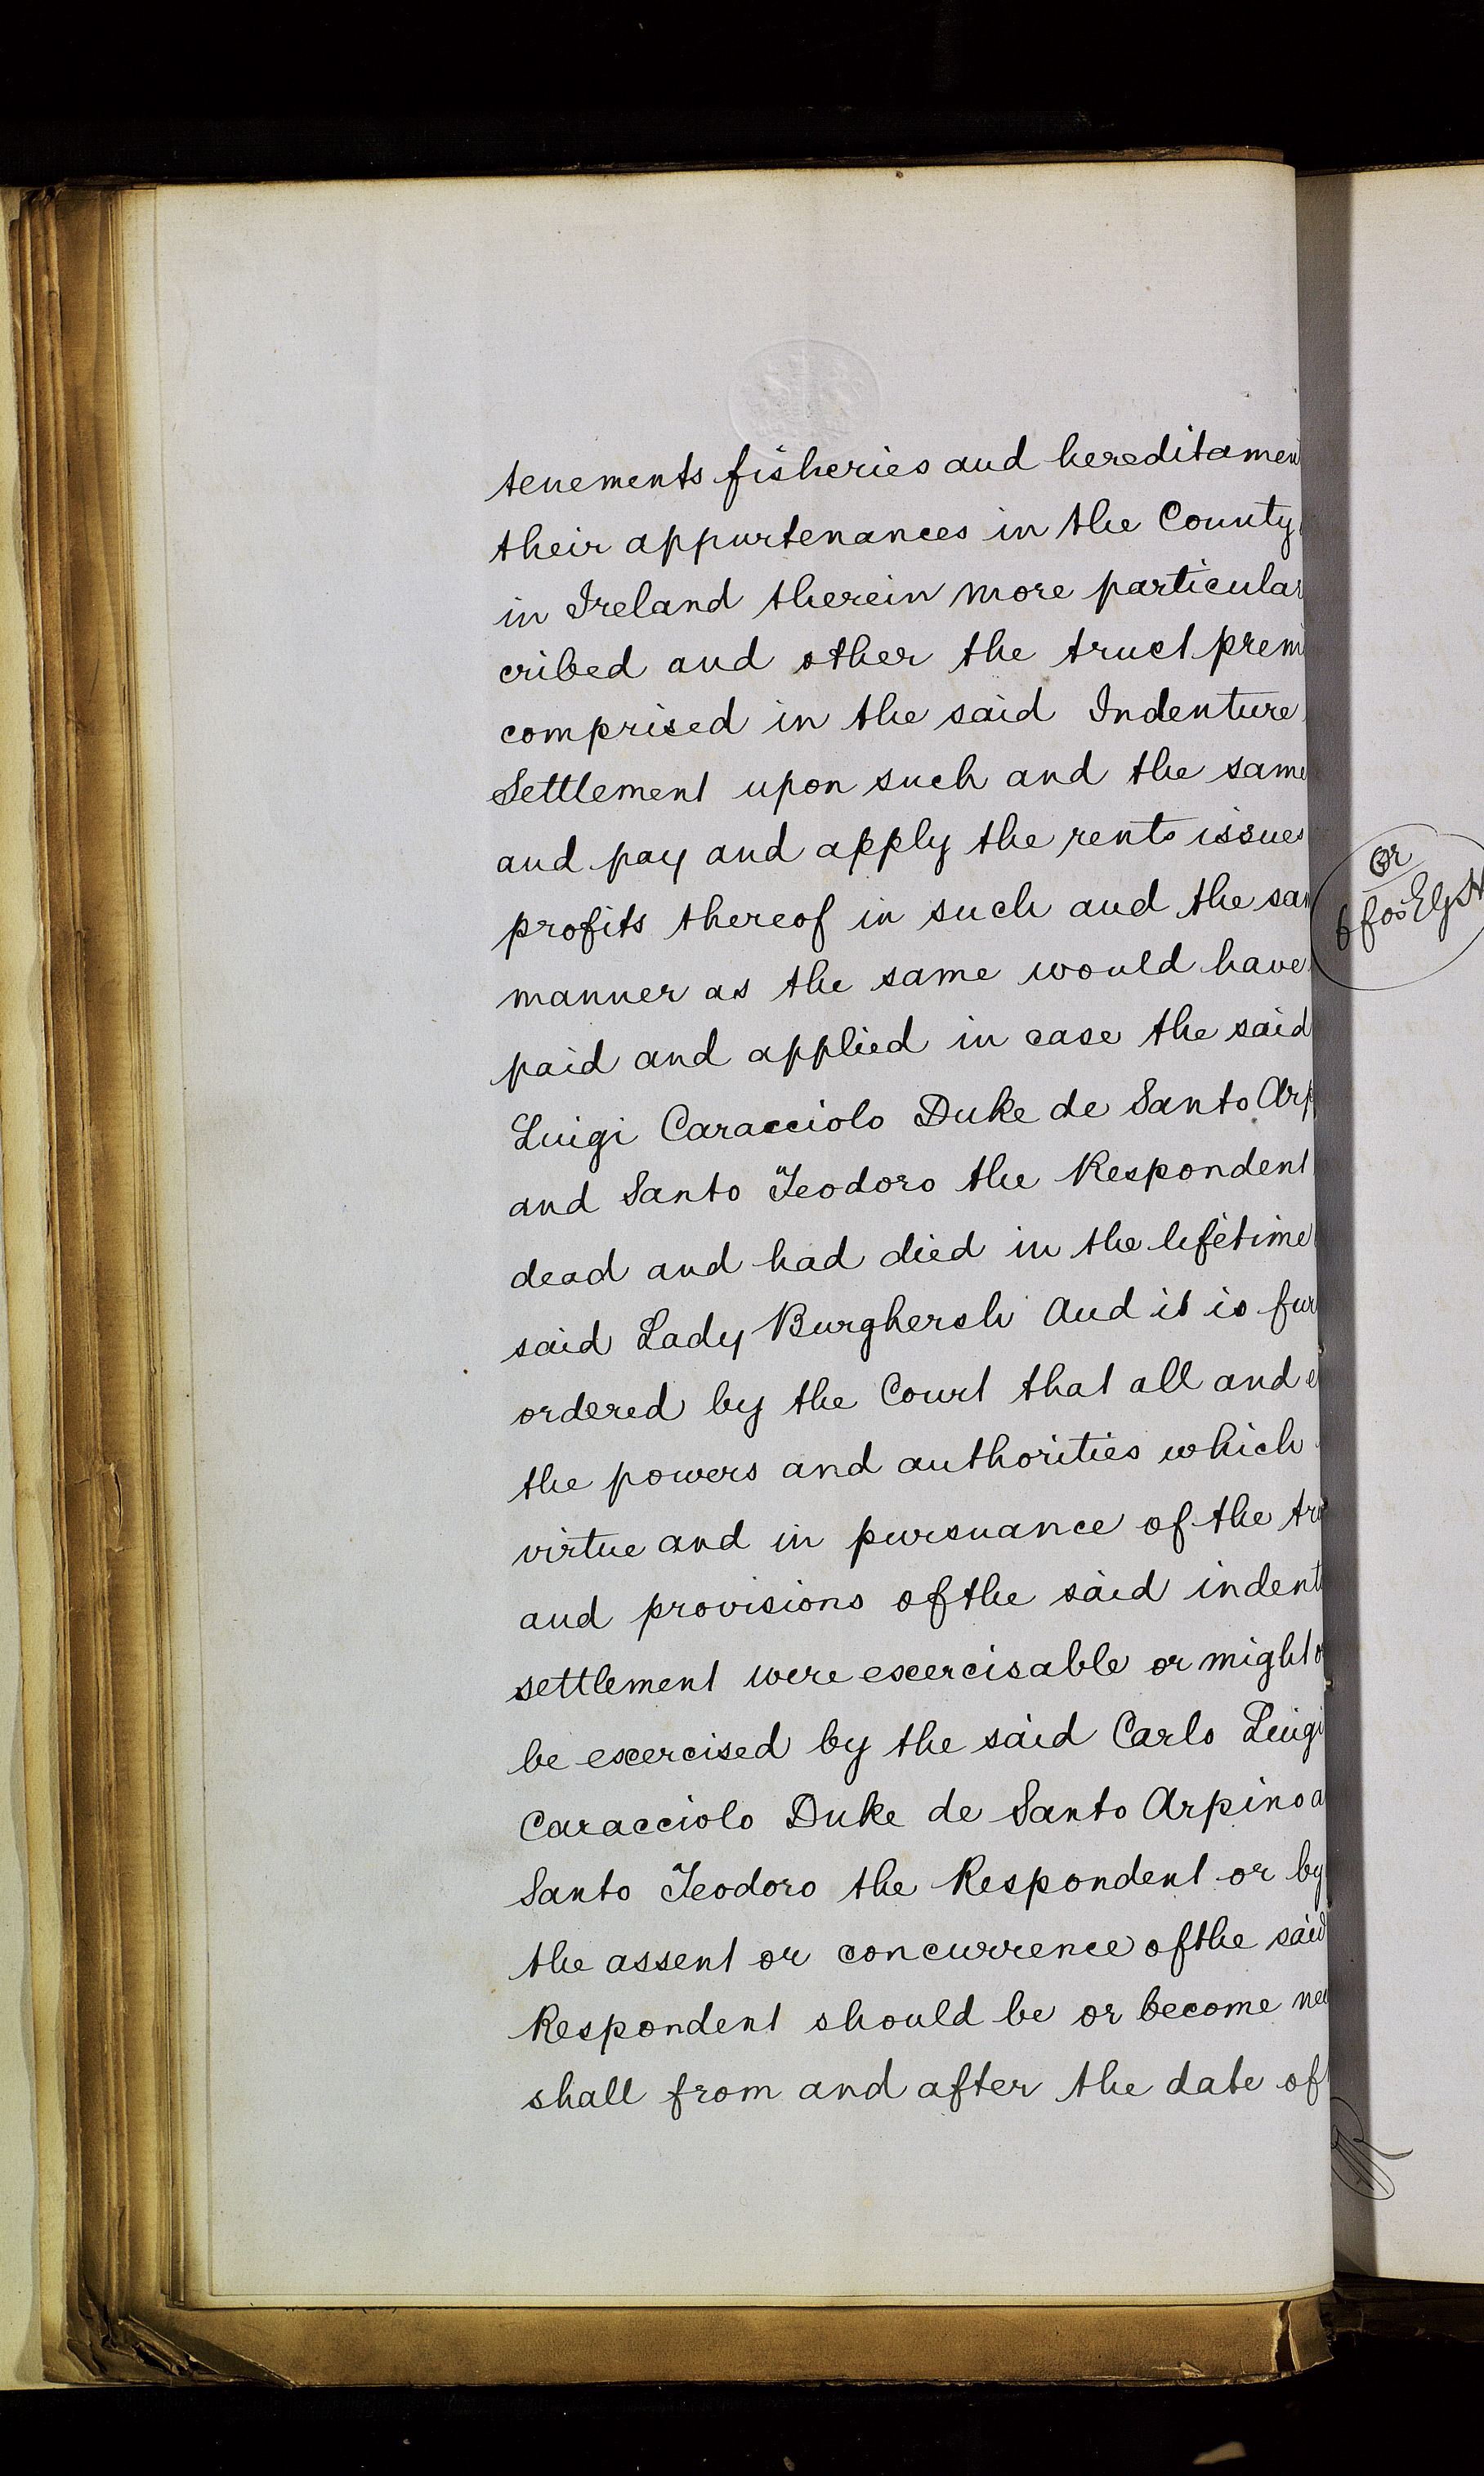 tenements fisheries and hereditamen
their appurtenances in the County
in Ireland therein more particular
cribed and other the trust prem
comprised in the said Indenture
Settlement upon such and the same
and pay and apply the rents issues
profits thereof in such and the sam
manner as the same would have
paid and applied in case the said
Luigi Caracciolo Duke de Santo Arp
and Santo Teodoro the Respondent
dead and had died in the lifetime
said Lady Burghersh And it is fur
ordered by the Court that all and e
the powers and authorities which
virtue and in pursuance of the tru
and provisions of the said indent
settlement were exercisable or might o
be exercised by the said Carlo Luigi
Caracciolo Duke de Santo Arpino a
Santo Teodoro the Respondent or by
the assent or concurrence of the said
Respondent should be or become nec
shall from and after the date of